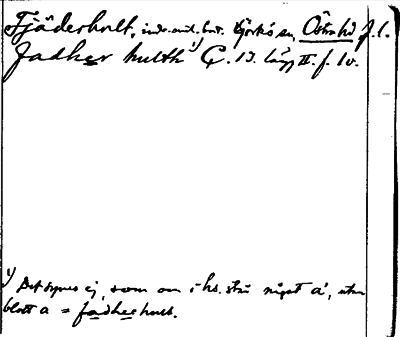 Fjäderhult, inds. mil. bost. Björkö sn, Östra hd J. l.
Fadher hulth ¹) C. 15. lägg II. f. 10.
¹) Det synes ej, som om i hs. står något å, utan
blott a = fadhechult.